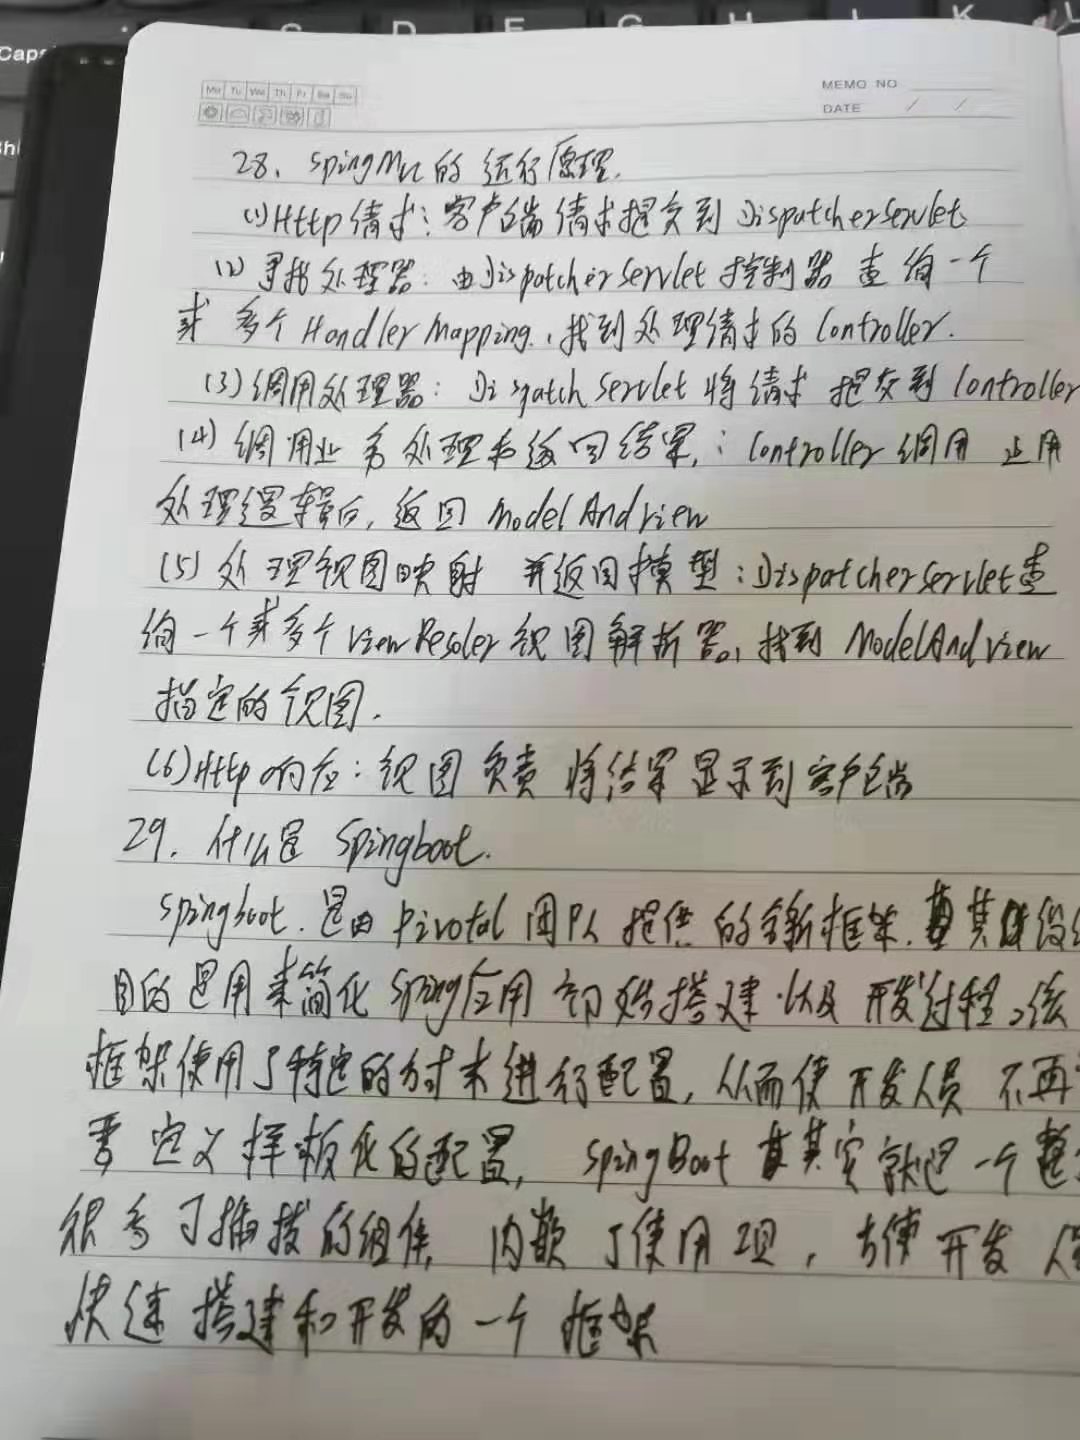 Caps
C D E G H J K L
Mo Tu We Th Fr Sa Su
MEMO NO
DATE / /
28. SpingMvc的运行原理.
(1)Http请求:客户端请求提交到DispatcherServlet
(2)寻找处理器:由DispatcherServlet控制器查询一个
或多个HandlerMapping,找到处理请求的Controller.
(3)调用处理器:DispatchServlet将请求提交到Controller
(4)调用业务处理和返回结果,:Controller调用业务
处理逻辑后,返回ModelAndView
(5)处理视图映射并返回模型:DispatcherServlet查
询一个或多个ViewResoler视图解析器,找到ModelAndView
指定的视图.
(6)Http响应:视图负责将结果显示到客户端
29.什么是Spingboot.
Spingboot.是由Pivotal团队提供的全新框架.其设
目的是用来简化Spring应用初始搭建以及开发过程。该
框架使用了特定的方式来进行配置,从而使开发人员不再
要定义样板化的配置,SpingBoot其实就是一个整
很多可插拔的组件,内嵌了使用项,方便开发人
快速搭建和开发的一个框架